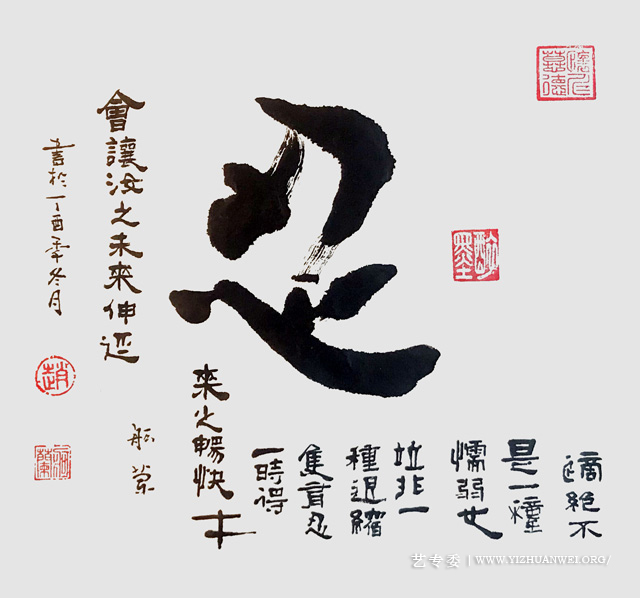 忍
絕不
是一種
懦弱也
竝非一
種退縮
忍
一時得
來之暢快
會讓汝之未來伸延
書於丁酉年冬月
趙
醉墨
艺专委 | WWW.YIZHUANWEI.ORG/